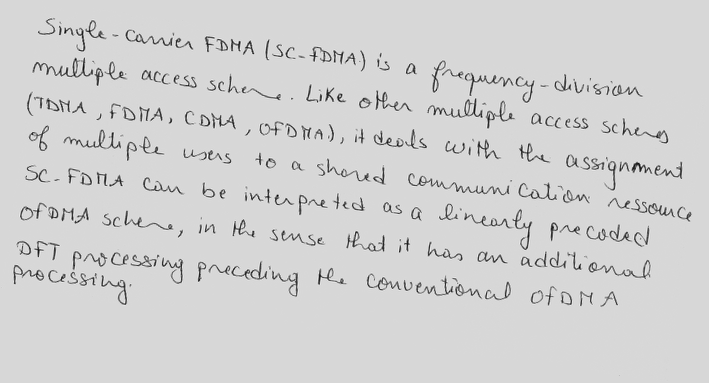 Single-carrier FDMA (SC-FDMA) is a frequency-division
multiple access scheme. Like other multiple access schems
(TDMA, FDMA, CDMA, OFDMA), it deals with the assignment
of multiple users to a shared communication ressource
SC-FDMA can be interpreted as a linearly precoded
OFDMA scheme, in the sense that it has an additional
DFT processing preceding the conventional OFDMA
processing.